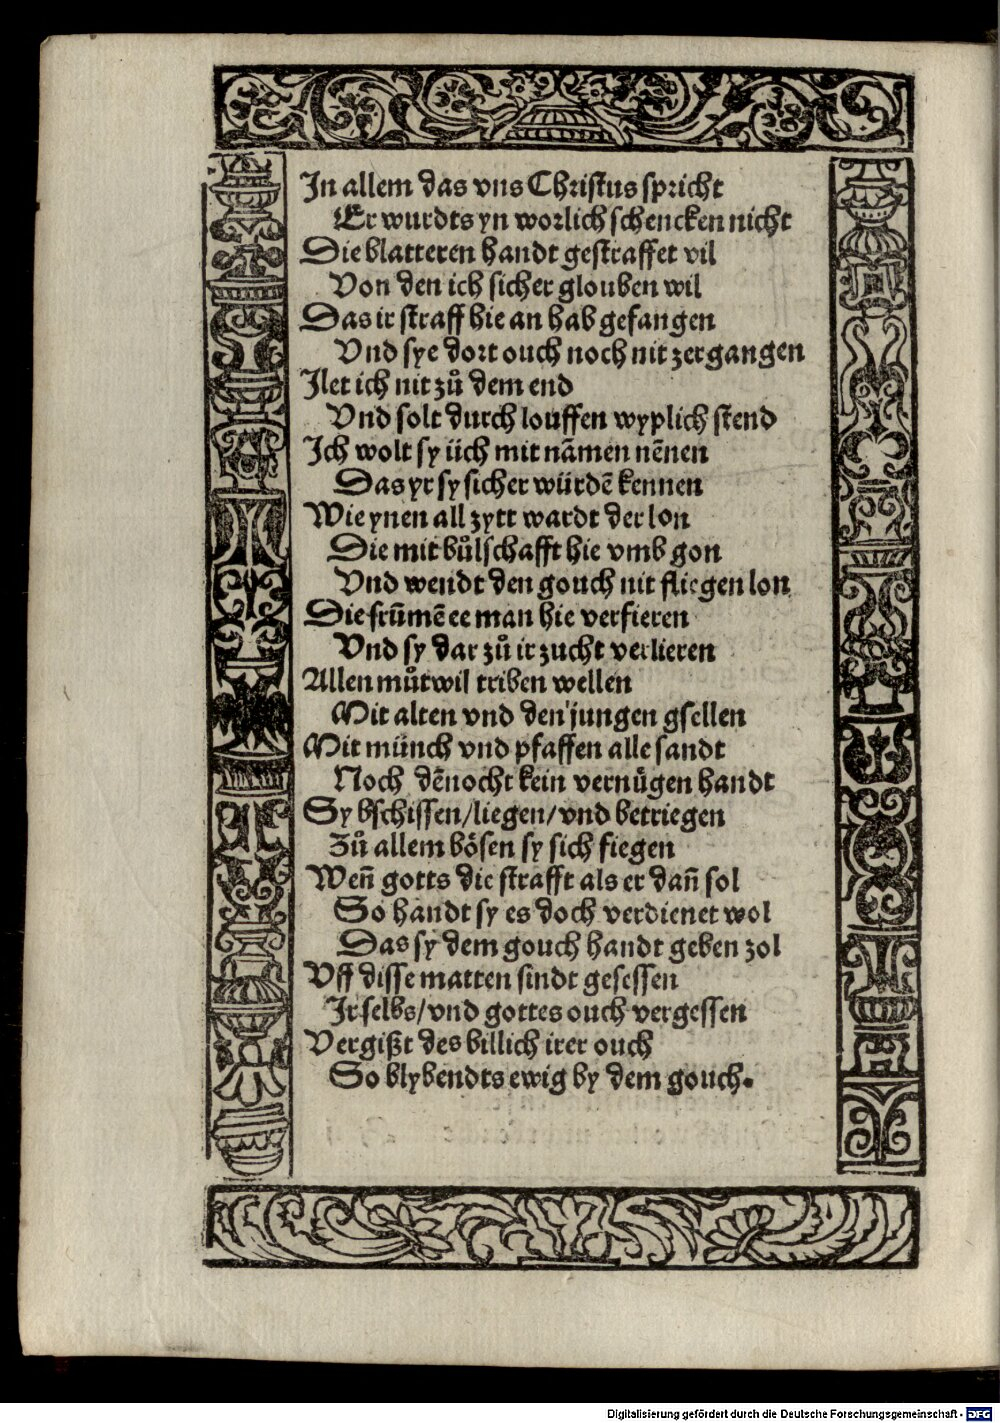 In allem das vns Christus spricht
Er wurdts yn worlich schencken nicht
Die blatteren handt gestraffet vil
Von den ich sicher glouben wil
Das ir straff hie an hab gefangen
Vnd sye dort ouch noch nit zergangen
Ilet ich nit zů dem end
Vnd solt durch louffen wyplich stend
Ich wolt sy üch mit nãmen nẽnen
Das yr sy sicher würdẽ kennen
Wie ynen all zytt wardt der lon
Die mit bůlschafft hie vmb gon
Vnd wendt den gouch nit fliegen lon
Die frũmẽ ee man hie verfieren
Vnd sy dar zů ir zucht verlieren
Allen můtwil triben wellen
Mit alten vnd den jungen gsellen
Mit münch vnd pfaffen alle sandt
Noch dẽnocht kein vernügen handt
Sy bschissen/liegen/vnd betriegen
Zů allem bösen sy sich fiegen
Weñ gotts die strafft als er dañ sol
So handt sy es doch verdienet wol
Das sy dem gouch handt geben zol
Vff disse matten sindt gesessen
Ir selbs/vnd gottes ouch vergessen
Vergißt des billich irer ouch
So blybendts ewig by dem gouch.
Digitalisierung gefördert durch die Deutsche Forschungsgemeinschaft - DFG